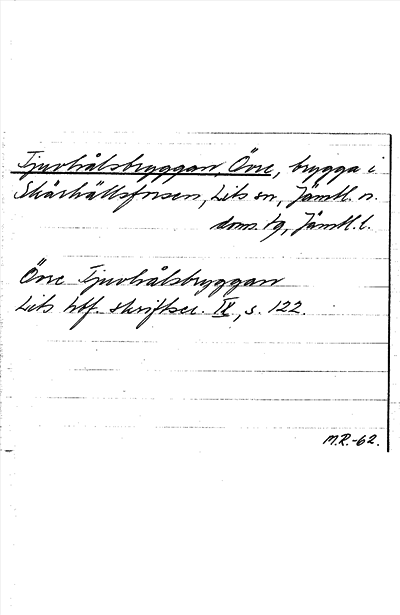 Tjuvhålsbryggan, Övre, brygga i
Skärhällsforsen, Lits sn, Jämtl. n.
doms. tg, Jämtl. l.
Övre Tjuvhålsbryggan
Lits hbf. skriftser. IV, s. 122.
M.R.-62.